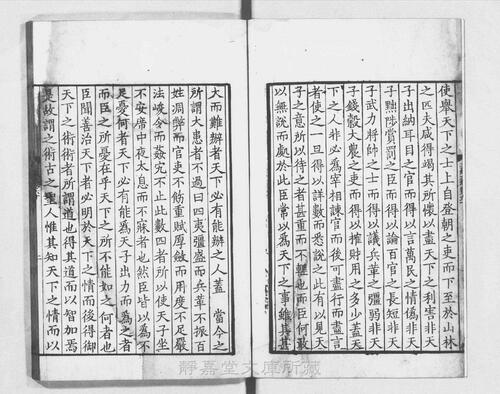 使舉天下之士上自登朝之吏而下至於山林
之匹夫咸得竭其所懷以盡天下之利害非天
子出納耳目之官而得以言萬民之情僞非天
子黜陟賞罰之臣而得以論百官之長短非天
子武力將帥之士而得以議兵革之彊弱非天
子錢穀大農之吏而得以搉財用之多少蓋天
下之人非必爲宰相諫官而後可盡行而盡言
者使之一旦得以詳數而悉說之此有以見天
子之意所以待之者甚重而不輕也而臣何敢
以無說而處於此臣常以爲天下之事雖其甚
大而難辦者天下必有能辦之人蓋當今之
所謂大患者不過曰四夷彊盛而兵革不振百
姓凋弊而官吏不飭重賦厚斂而用度不足嚴
法峻令而姦宄不止此數四者所以使天子坐
不安席中夜太息而不寐者也然臣皆以爲不
足憂何者天下必有能爲天子出力而爲之者
而臣之所憂在乎天下之所不能如之何者也
臣聞善治天下者必明於天下之情而後得御
天下之術術者所謂道也得其道而以智加焉
是故謂之術古之聖人惟其知天下之情而以
二
靜嘉堂文庫所藏